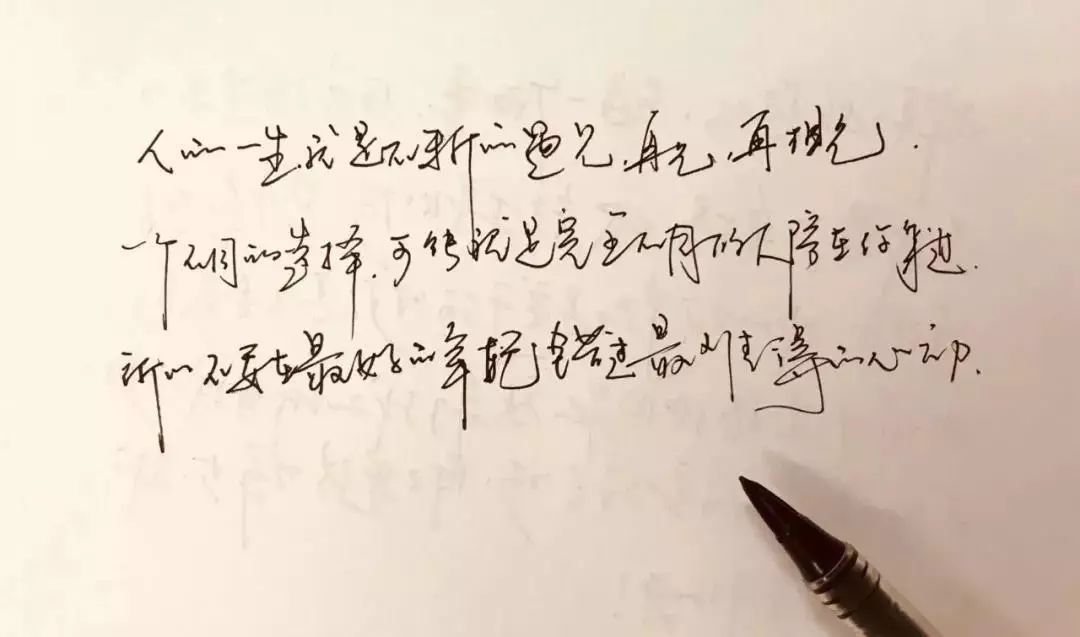 人的一生,就是不断的遇见,再见,再相见.
一个不同的选择,可能就是完全不同的人陪在你身边.
所以不要在最好的年纪,错过最难得的心动.